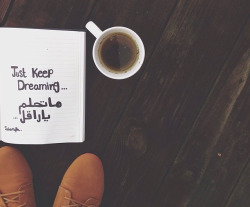 Just Keep
Dreaming...
ماتحلم
ياراقل..